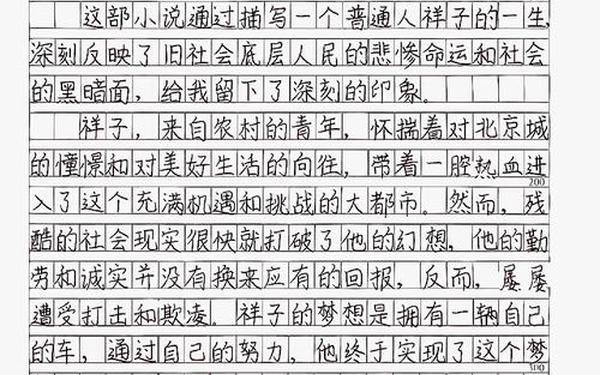 这部小说通过描写一个普通人祥子的一生,
深刻反映了旧社会底层人民的悲惨命运和社会
的黑暗面，给我留下了深刻的印象。
祥子，来自农村的青年，怀揣着对北京城
的憧憬和对美好生活的向往，带着一腔热血进
200
入了这个充满机遇和挑战的大都市。然而，残
酷的社会现实很快就打破了他的幻想，他的勤
劳和诚实并没有换来应有的回报，反而，屡屡
遭受打击和欺凌。祥子的梦想是拥有一辆自己
的车，通过自己的努力，他终于实现了这个梦
300